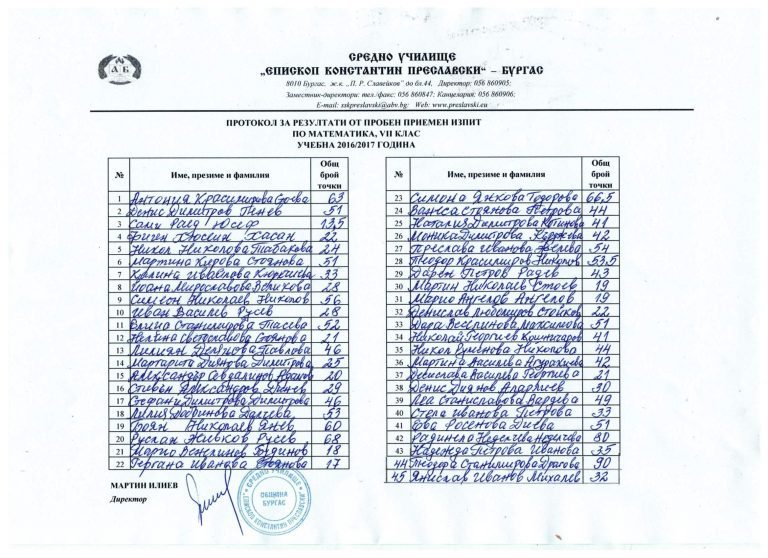 СРЕДНО УЧИЛИЩЕ
„ЕПИСКОП КОНСТАНТИН ПРЕСЛАВСКИ“ – БУРГАС
8010 Бургас, ж.к. „П. Р. Славейков” до бл.44, Директор: 056 860905;
Заместник-директори: тел./факс: 056 860847; Канцелария: 056 860906;
E-mail: sskpreslavski@abv.bg; Web: www.preslavski.eu
ПРОТОКОЛ ЗА РЕЗУЛТАТИ ОТ ПРОБЕН ПРИЕМЕН ИЗПИТ
ПО МАТЕМАТИКА, VII КЛАС
УЧЕБНА 2016/2017 ГОДИНА
№ Име, презиме и фамилия Общ брой точки
1 Антония Красимирова 63
2 Денис Димитров Пенев 51
3 Сами Юсеф 13,5
4 Хюсеин Хасан 22
5 Никол Николова Табакова 24
6 Мартина Стоянова 51
7 Ивайлова 33
8 Йоана Мирославова 28
9 Симеон Николаев Николов 56
10 Иван Василев Русев 28
11 Елина Станимирова Тасева 52
12 Светославова Стоянова 21
13 Лилиян Павлова 46
14 Маргарита Диянова Димитрова 25
15 Александър 20
16 Стивън Александров 29
17 Стефани Димитрова Димитрова 46
18 Лилия Добринова Далчева 53
19 Боян Николаев Янев 60
20 Руслан Живков Русев 68
21 Марио 18
22 Гергана Иванова Стоянова 17
№ Име, презиме и фамилия Общ брой точки
23 Симона Янкова Тодорова 66,5
24 Ванеса Стоянова Петрова 44
25 Наталия Димитрова 41
26 Моника Димитрова 42
27 Преслава Иванова 54
28 Теодор Красимиров Николов 53,5
29 Дарен Петров Радев 43
30 Мартин Николаев Стоев 19
31 Марио Ангелов Ангелов 19
32 Денислав Любомиров Стойков 22
33 Дара Веселинова Максимова 51
34 Николай Георгиев 41
35 Никол Руменова 44
36 Мартина Василева 42
37 Десислава Василева 21
38 Денис Диянов 30
39 Леа Станиславова Вардева 49
40 Стела Иванова Петрова 33
41 Ева Росенова Диева 51
42 Радинела Неделчева Неделчева 80
43 Надежда Петрова Иванова 35
44 Теодора Станимирова Драгова 90
45 Янислав Иванов Михалев 32
МАРТИН ИЛИЕВ
Директор
СРЕДНО УЧИЛИЩЕ
ОБЩИНА
БУРГАС